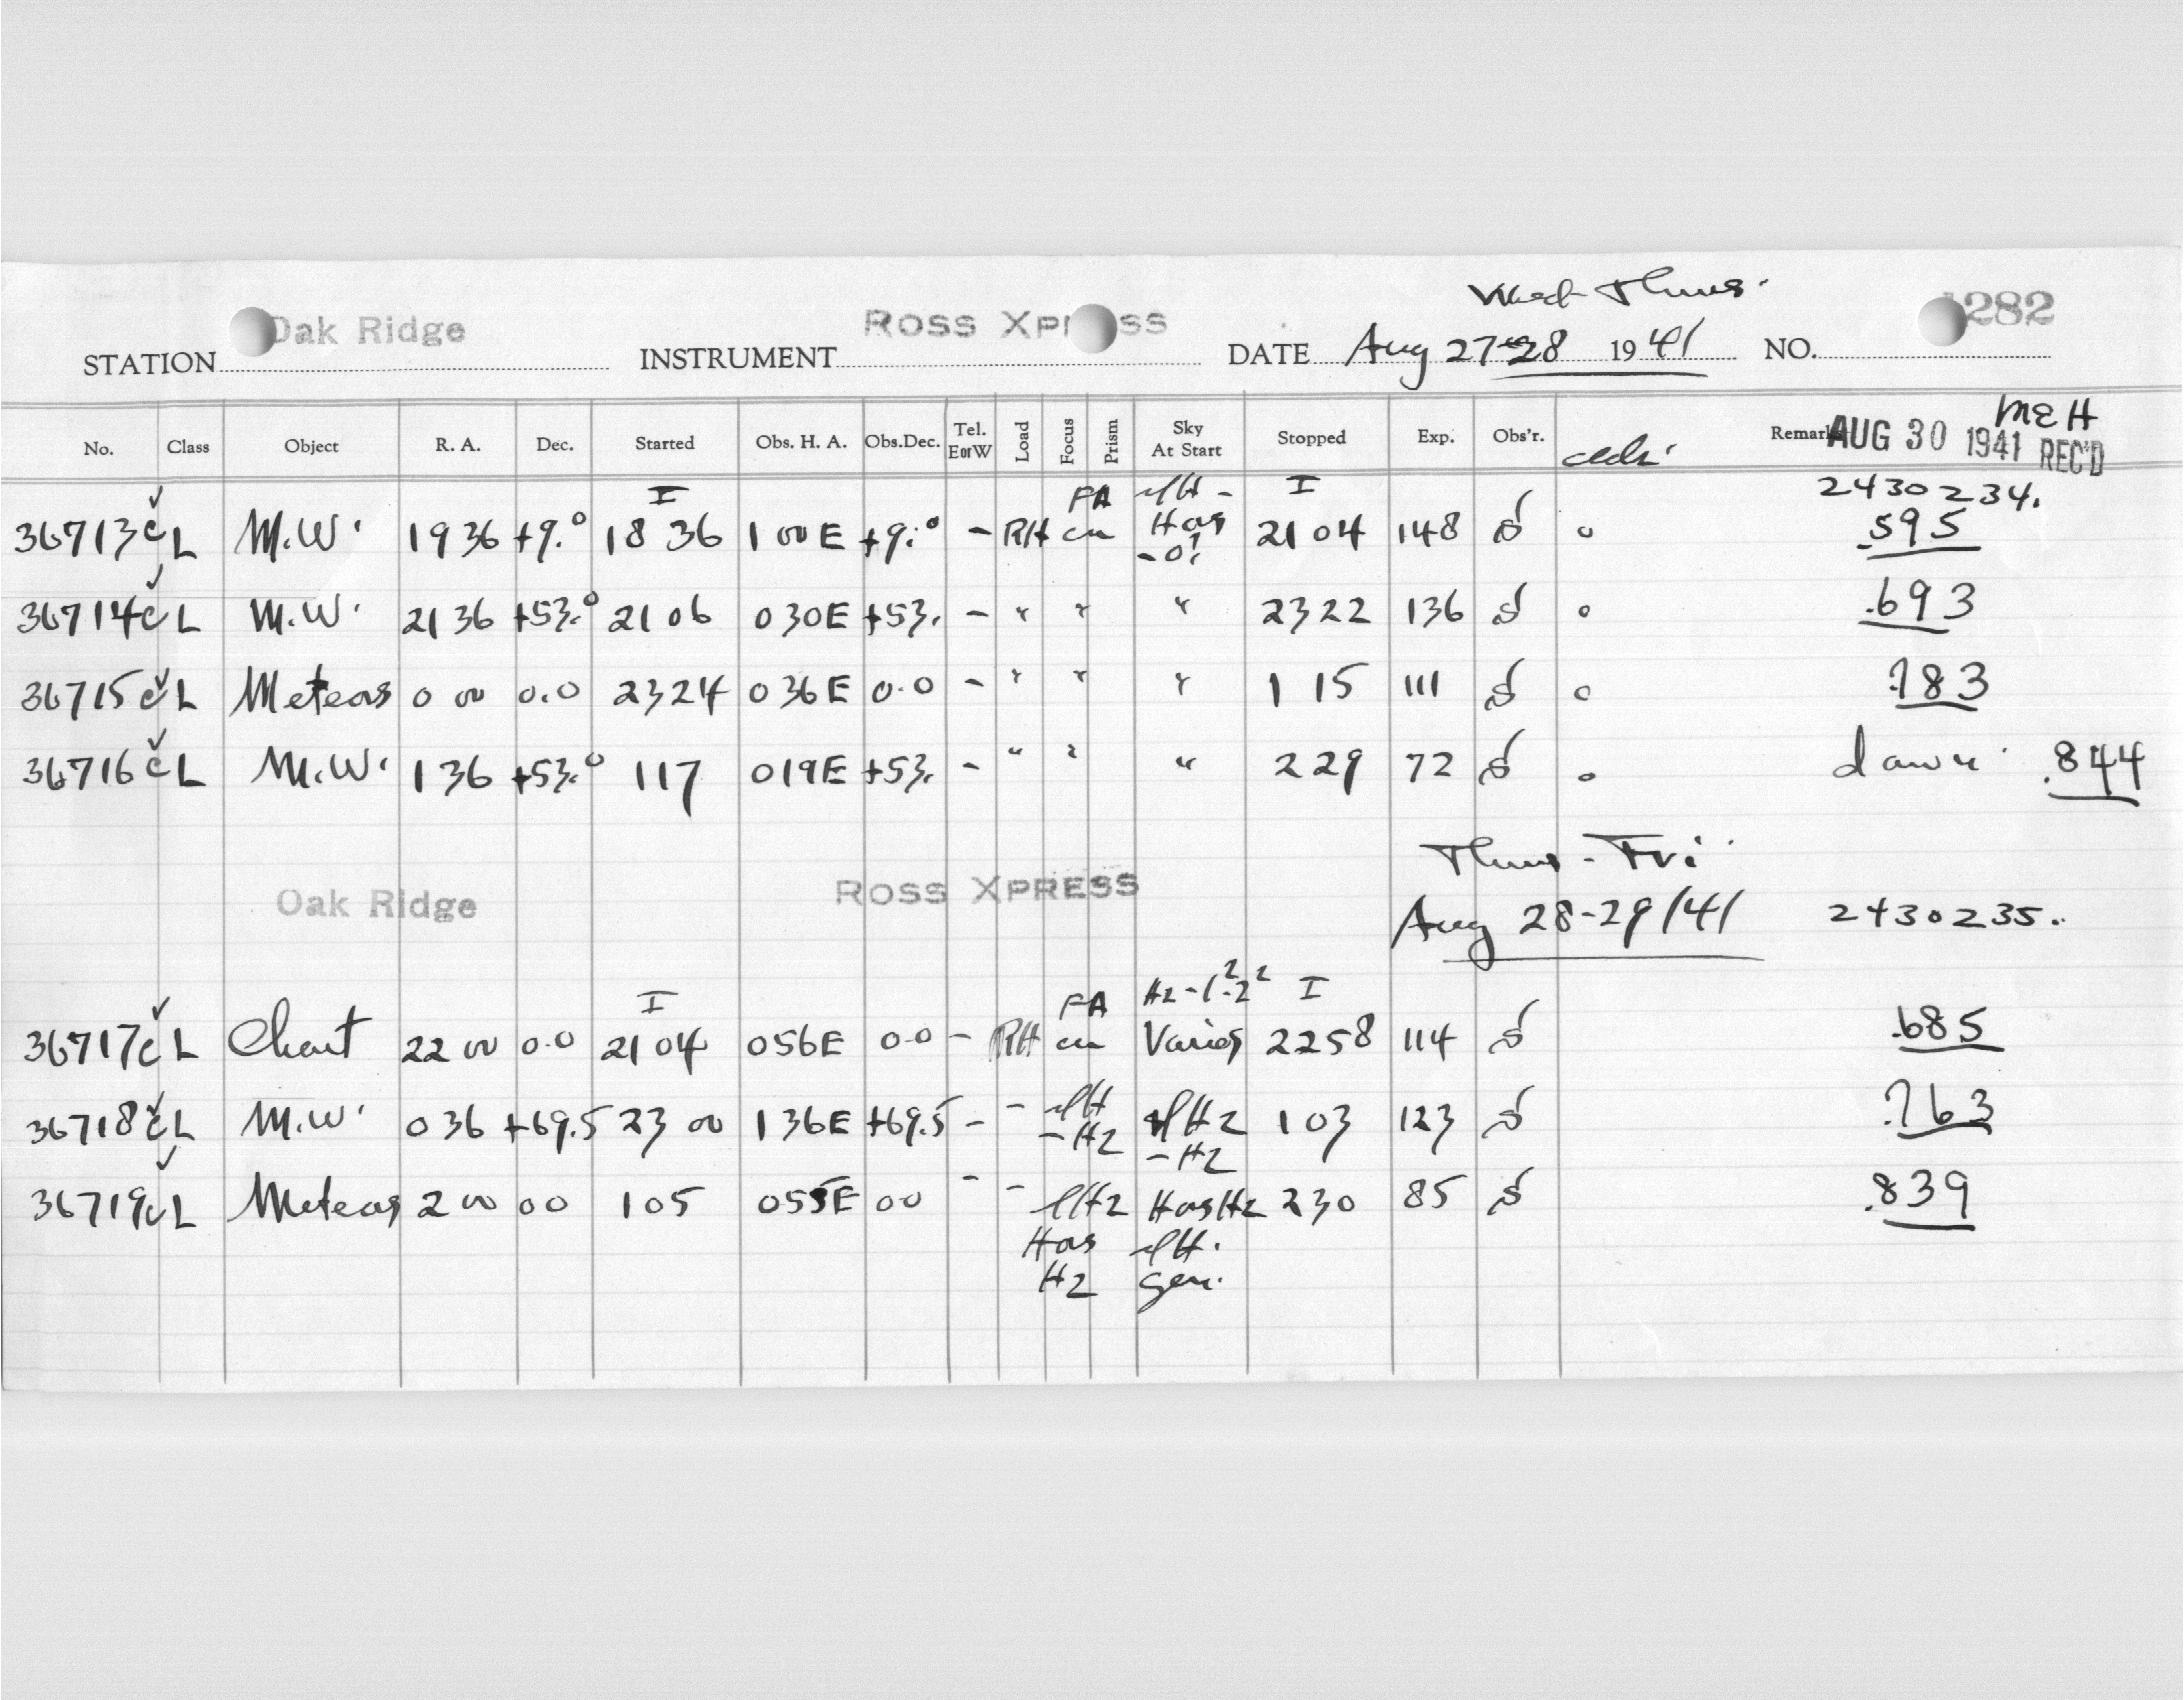 Wed-Thurs.
Oak Ridge ROSS XPRESS 282
STATION INSTRUMENT DATE Aug 27-28 1941 NO.
MEH
No. Class Object R. A. Dec. Started Obs. H. A. Obs.Dec. Tel. EorW Load Focus Prism Sky At Start Stopped Exp. Obs'r. Remarks AUG 30 1941 REC'D
I FA I 2430234.
36713 c L M.W. 19 36 +9.° 18 36 1 00 E +9.° - RH cu Has 21 04 148 o .595
36714 c L M.W. 21 36 +53.° 21 06 0 30 E +53. - " " " 23 22 136 o .693
36715 c L Meteors 0 00 0.0 23 24 0 36 E 0.0 - " " " 1 15 111 o .783
36716 c L M.W. 1 36 +53.° 1 17 0 19 E +53. - " " " 2 29 72 o dawn .844
Thurs - Fri
Oak Ridge ROSS XPRESS Aug 28-29/41 2430235.
I FA Hz I
36717 c L Chart 22 00 0.0 21 04 0 56 E 0.0 - RH cu Varies 22 58 114 .685
36718 c L M.W. 0 36 +69.5 23 00 1 36 E +69.5 - - - Hz - Hz 1 03 123 .763
36719 c L Meteors 2 00 0 0 1 05 0 55 E 0 0 - - Hz Has Hz 2 30 85 .839
Has
Hz gen.